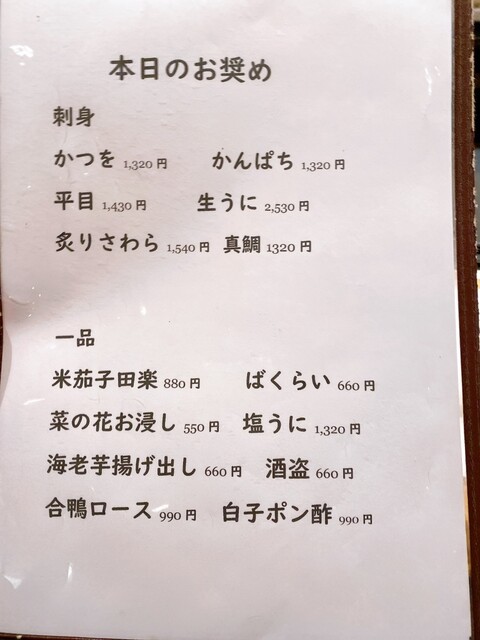 本日のお奨め
刺身
かつを 1,320 円 かんぱち 1,320 円
平目 1,430 円 生うに 2,530 円
炙りさわら 1,540 円 真鯛 1320 円
一品
米茄子田楽 880 円 ばくらい 660 円
菜の花お浸し 550 円 塩うに 1,320 円
海老芋揚げ出し 660 円 酒盗 660 円
合鴨ロース 990 円 白子ポン酢 990 円